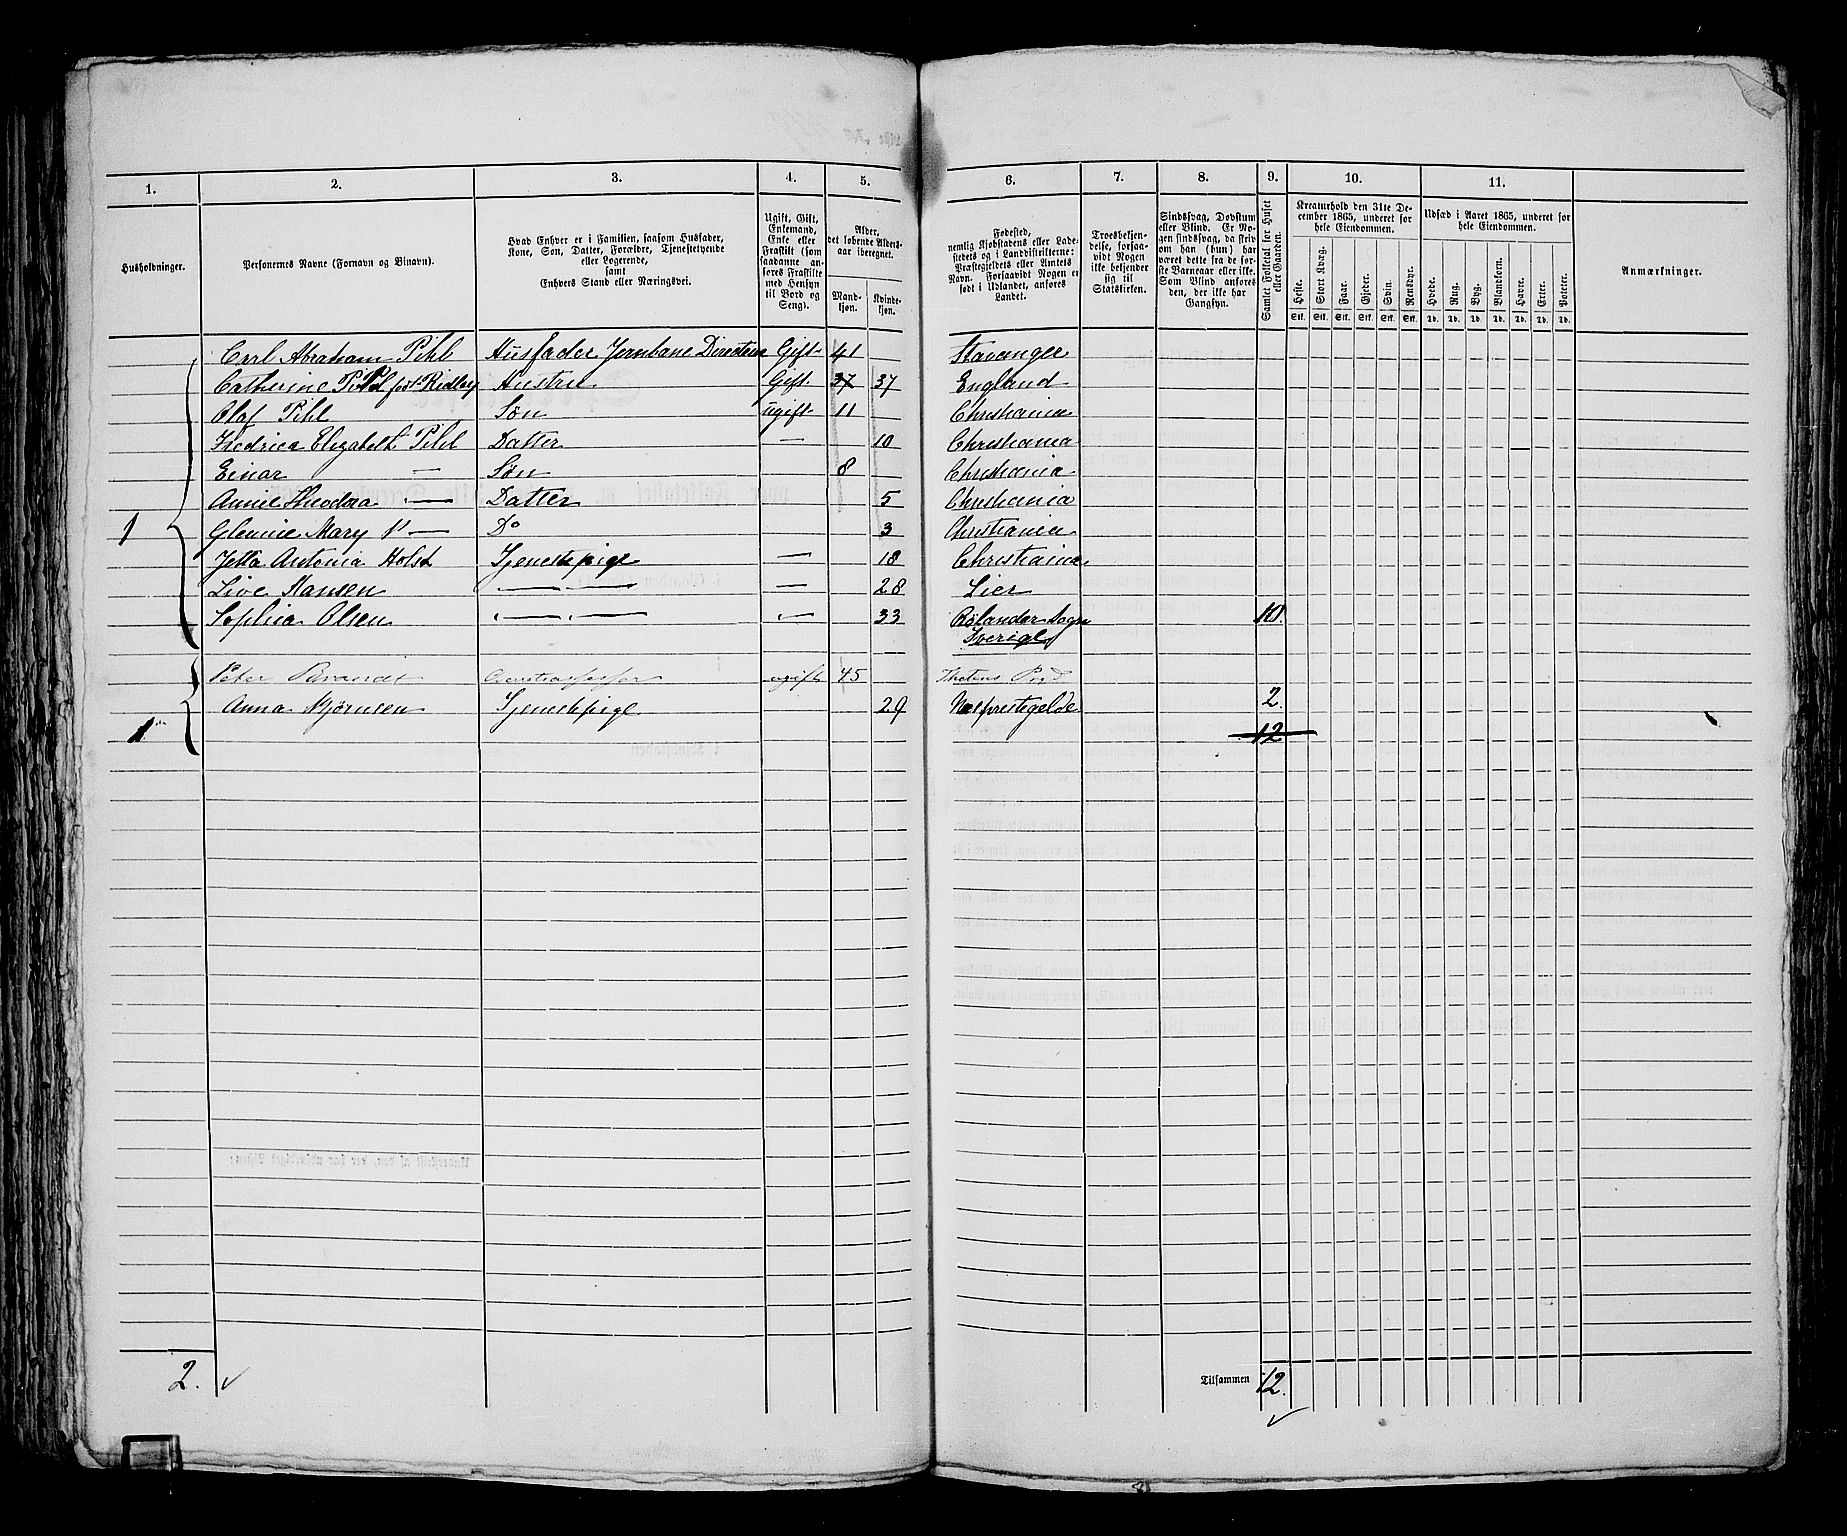 1. 2. 3. 4. 5. 6. 7. 8. 9. 10. 11.
Husholdninger.
Personernes Navne (Fornavn og Binavn).
Hvad Enhver er i Familien, saasom Husfader,
Kone, Søn, Datter, Forældre, Tjenestetyende
eller Logerende,
samt
Enhvers Stand eller Næringsvei.
Ugift, Gift,
Enkemand,
Enke eller
Fraskilt (som
saadanne an-
føres Fraskilte
med Hensyn
til Bord og
Seng).
Alder,
det løbende Alders-
aar iberegnet.
Mand-
kjøn.
Kvinde-
kjøn.
Fødested,
nemlig Kjøbstadens eller Lade-
stedets og i Landdistrikterne:
Præstegjeldets eller Annexets
Navn. Forsaavidt Nogen er
født i Udlandet, anføres
Landet.
Troesbekjen-
delse, forsaa-
vidt Nogen
ikke bekjender
sig til
Statskirken.
Sindssvag, Døvstum
eller Blind. Er No-
gen sindssvag, da skriv
om han (hun) har
været dette fra de før-
ste Barneaar eller ikke.
Som Blind anføres
den, der ikke har
Gangsyn.
Samlet Folketal for Huset
eller Gaarden.
Kreaturhold den 31te De-
cember 1865, underet for
hele Eiendommen.
Heste. Stort Kvæg. Faar. Gjeder. Svin. Rensdyr.
Stk. Stk. Stk. Stk. Stk. Stk.
Udsæd i Aaret 1865, underet for
hele Eiendommen.
Hvede. Rug. Byg. Blandkorn. Havre. Erter. Poteter.
Td. Td. Td. Td. Td. Td. Td.
Anmærkninger.
Carl Abraham Pihl Husfader Jernbane Directeur Gift 41 Stavanger
Catherine Pihl født Ridley Hustru Gift 37 37 England
Olaf Pihl Søn ugift 11 Christiania
Fredrica Elizabeth Pihl Datter — 10 Christiania
Einar — Søn 8 Christiania
Annie Theodora — Datter 5 Christiania
1 Glennie Mary P — Do 3 Christiania
Jetta Antonia Holst Tjenestpige — 18 Christiania
Live Hansen — — — 28 Lier
Sophia Olsen — — — 33 Sogn 10.
Sverige
Peter Brandt ugift 45
Anna Bjørnsen Tjenestpige 29 Næsprestegelde 2.
1 12
2. Tilsammen 12.